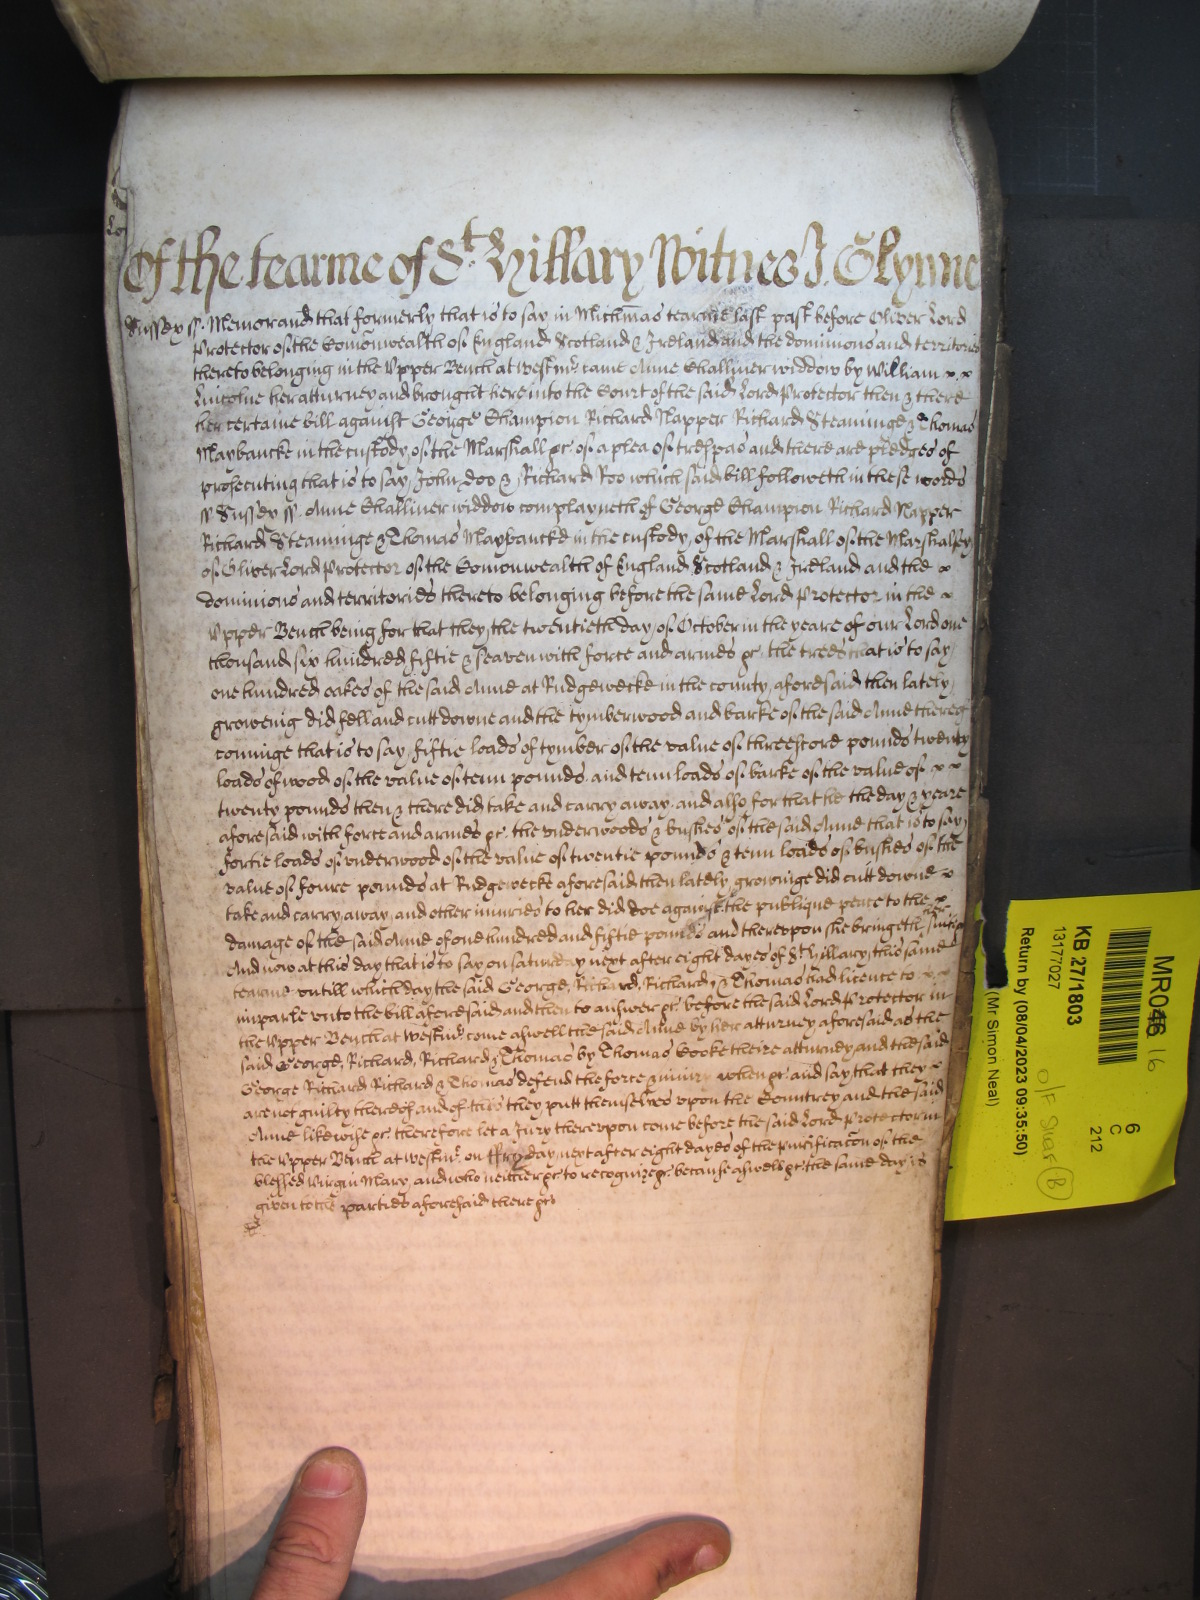 Of the tearme of St Hillary Witnes J. Glynne
Sussex ss. Memorand that formerly that is to say in Michmas tearme last past before Oliver Lord
Protector of the Comonwealth of England Scotland & Ireland and the dominions and territories
thereto belonging in the Upper Bench at Westmr. came Anne Challiner widdow by William
Lincolne her atturney and brought here into the Court of the said Lord Protector then & there
her certaine bill against George Champion Richard Napper Richard Steaninge & Thomas
Maybancke in the custody of the Marshall &c. of a plea of trespas and there are pledges of
prosecuting that is to say John Doo & Richard Roo which said bill followeth in these words
ss Sussex ss. Anne Challiner widdow complayneth of George Champion Richard Napper
Richard Steaninge & Thomas Maybancke in the custody of the Marshall of the Marshalsey
of Oliver Lord Protector of the Comonwealth of England Scotland & Ireland and the
dominions and territories thereto belonging before the same Lord Protector in the
Upper Bench being for that they the twentieth day of October in the yeare of our Lord one
thousand six hundred fiftie & seaven with force and armes &c. the trees that is to say
one hundred oakes of the said Anne at Rudgewecke in the county aforesaid then lately
groweing did fell and cutt downe and the tymber wood and barke of the said Anne thereof
cominge that is to say fiftie loads of tymber of the value of threescore pounds twenty
loads of wood of the value of tenn pounds and tenn loads of barke of the value of
twenty pounds then & there did take and carry away and also for that he the day & yeare
aforesaid with force and armes &c. the underwoods & bushes of the said Anne that is to say
fortie loads of underwood of the value of twentie pounds & tenn loads of bushes of the
value of foure pounds at Rudgewecke aforesaid then lately growinge did cutt downe
take and carry away and other iniuries to her did doe against the publique peace to the
damage of the said Anne of one hundred and fiftie pounds and thereupon she bringeth suite
And now at this day that is to say on saturday next after eight dayes of St Hillary this same
tearme untill which day the said George, Richard, Richard & Thomas had licence to
imparle unto the bill aforesaid and then to answer &c. before the said Lord Protector in
the Upper Bench at Westmr. come aswell the said Anne by her atturney aforesaid as the
said George, Richard, Richard & Thomas by Thomas Cooke theire atturney and the said
George Richard Richard & Thomas defend the force & iniury when &c. and say that they
are not guilty thereof and of this they putt themselves upon the Countrey and the said
Anne likewise &c. therefore let a Jury thereupon come before the said Lord Protector in
the Upper Bench at Westmr. on ffryday next after eight dayes of the purificacon of the
blessed Virgin Mary and who neither &c. to recognize &c. because aswell &c. the same day is
given to the parties aforesaid there &c.
MR046 16
KB 27/1803
13177027
Return by (08/04/2023 09:35:50)
(Mr Simon Neal)
6
C
212
O/F
B